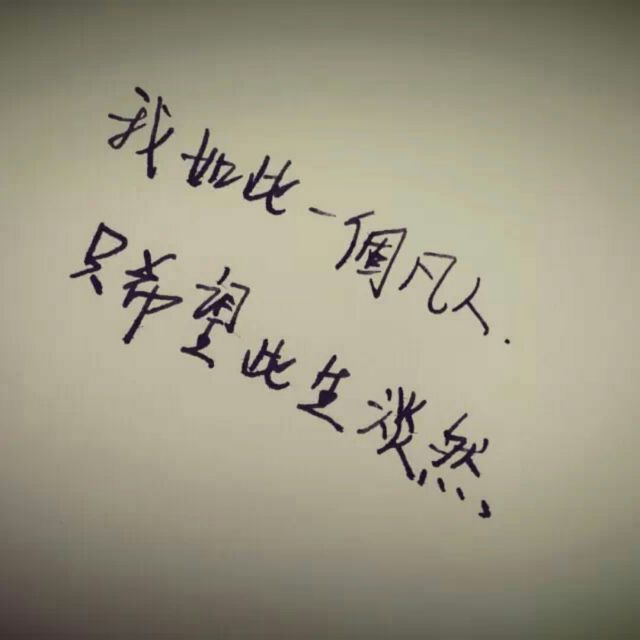 我如此一個凡人.
只希望此生淡然